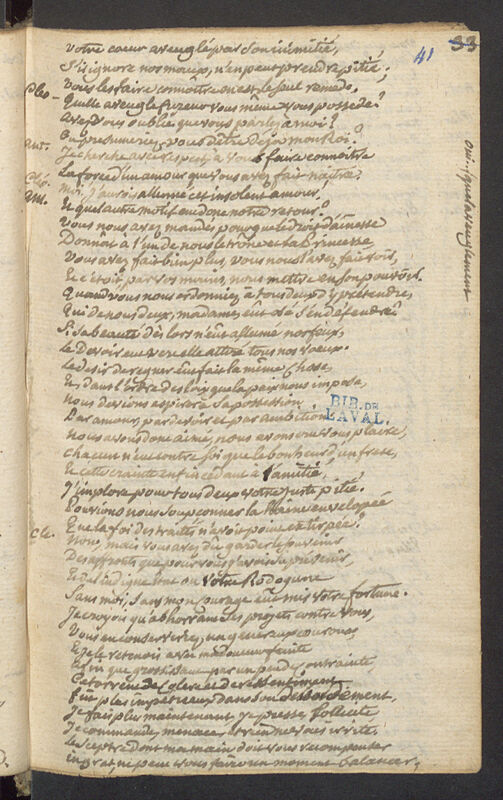 41 33
votre coeur aveuglé par son inimitié,
S'il ignore nos maux, n'en peut prendre pitié;
Cleo - Vous les faire connoître en est le seul remede,
Quelle aveugle fureur vous même vous possede?
Avez vous oublié que vous parlez à moi?
Ou présumeriez vous d'être déja mon Roi?
ant. Je cherche avec respect à vous faire connoitre
La force d'un amour que vous avez fait naître.
Cléo. moi, j'aurois allumé cet insolent amour,
ant. Et quel autre motif eut donc notre retour?
Vous nous avez mandés pour que le droit d'ainesse
Donnât à l'un de nous le trône et la Princesse
Vous avez fait bien plus, vous nous l'avez fait voir,
Et c'étoit par vos mains, nous mettre en son pouvoir.
Quand vous nous ordonniez à tous deux d'y prétendre,
Qui de nous deux, madame, eût osé s'en défendre?
Si sa beauté dès lors n'eut allumé nos feux,
Le Devoir eut vers elle attiré tous nos voeux.
Le desir de regner eut fait la même chose,
Et, dans l'ordre des loix que la paix nous impose,
Nous devions aspirer à sa possession
Par amour, par devoir et par ambition
Nous avons donc aimé, nous avons cru vous plaire,
Chacun n'eut contre soi que le bonheur d'un frere,
Et cette crainte enfin cedant à l'amitié,
J'implore pour tous deux votre juste pitié.
Pouvions nous soupçonner la haine enveloppée
Et que la foi des traités n'avoit point extirpée?
Cle. Non, mais vous avez dû garder le souvenir
Des affronts que pour vous j'avois sçu prévenir,
Et de l'indigne tort où votre Rodogune
Sans moi, sans mon courage eut mis votre fortune.
Je croyois qu'abhorrant les projets contre vous,
Vous en conserveriez un généreux couroux
Et je le retenois avec ma douceur feinte
Afin que grossissant par un peu de contrainte,
Ce torrent de colere et de ressentiment
Fut plus impetueux dans son debordement,
Je fais plus maintenant, je presse, sollicite,
Je commande, menace, et rien ne vous irrite.
Le sceptre dont ma main doit vous récompenser
Ingrat, ne peut vous faire un moment balancer,
oui. quel aveuglement
BIB. DE
LAVAL.